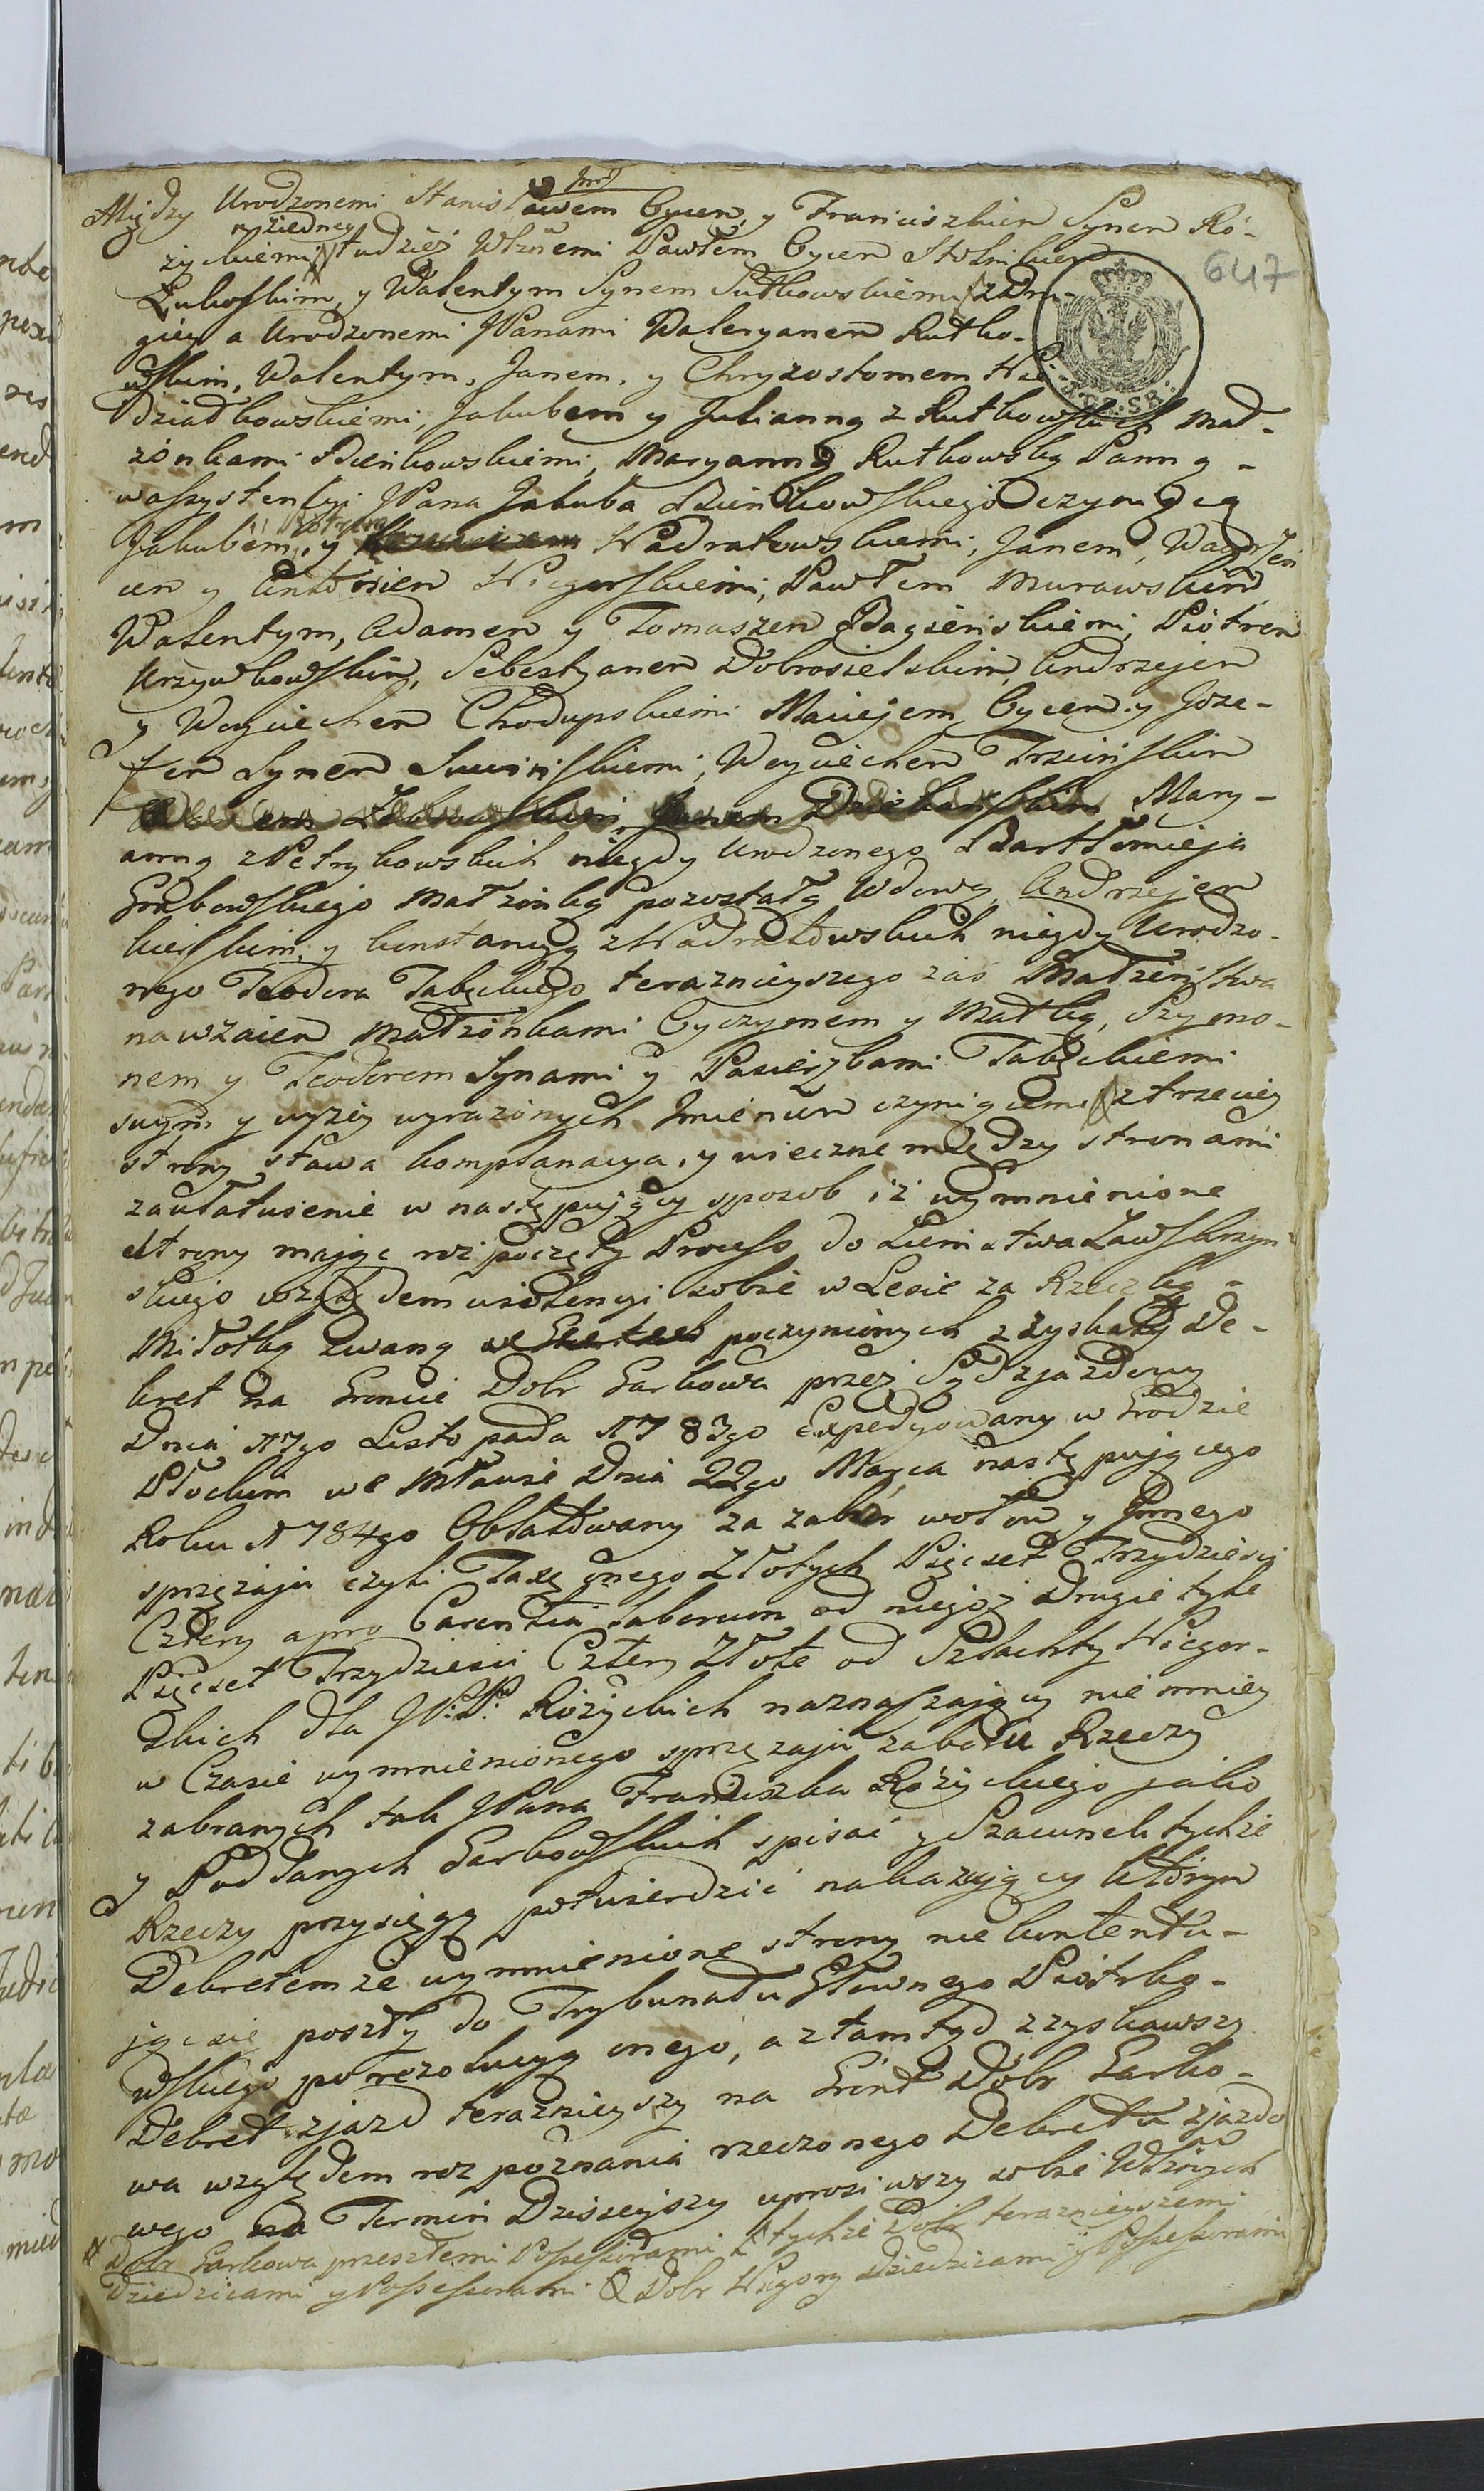 647
Między Urodzonemi Stanisławem Oycem, y Franciszkiem Synem Ró-
życkiemi z iedney tudzież Wżnemi Pawłem Oycem Stolnikiem
Łukoskim, y Walentym Synem Sutkowskiemi z dru-
giey a Urodzonemi JPanami Waleryanem Rutko-
wskim, Walentym, Janem, y Chryzostomem Nie-
działkowskiemi, Jakubem y Julianną z Rutkowskich Mał-
żonkami Bieńkowskiemi, Maryanną Rutkowską Panną -
w assystencyi JPana Jakuba Bieńkowskiego czyniącą
Jakubem, y Piotrem Nadratowskiemi, Janem, Wawrzeń
cem y Antonim Niegorskiemi, Pawłem Murawskim
Walentym, Adamem y Tomaszem Bagieńskiemi, Piotrem
Krzywkowskim, Sebestyanem Dobrosielskim, Andrzejem
y Woyciechem Chodupskiemi Maciejem Oycem y Józe-
fem Synem Suwińskiemi, Woyciechem Trzcińskim
Mary-
anną z Petrykowskich niegdy Urodzonego Bartłomieja
Grabowskiego Małżonką pozostałą Wdową, Andrzejem
kierskim, y konstancyą z Nadratowskich niegdy Urodzo-
nego Teodora Tabęckiego teraznieyszego zaś Małżeństwa
nawzaiem Małżonkami Oyczymem y Matką, Szymo-
nem y Teodorem Synami y Pasierzbami Tabęckiemi
swym y wyżey wyrażonych Imieniem czyniącemi z trzeciey
strony stawa komplanacya, y wieczne między stronami
załatwienie w następujący sposob iż wymienione
strony mając rozpoczęty Process do Ziemstwa Zawskrzyń
skiego względem wiolencyi sobie w Lesie za Rzeczką -
Miłotką zwaną poczynionych z zyskały De-
kret na Groncie Dobr Garkowa przez Sąd zjazdowy
Dnia 17go Listopada 1783go Expedyowany w Grodzie
Płockim we Mławie Dnia 22go Marca następującego
Roku 1784go Oblatowany za zabor wołow y Jnnego
sprzężaju czyli Taxę onego Złotych Pięcset Trzydzieści
Cztery a pro Carentia laborum od niegoż drugie tyle
Pięcset Trzydzieści Cztery Złote od Szlachty Niegor-
skich dla JP.P. Różyckich naznaszający nie mniey
w Czasie wymnienionego sprzężaju zaboru Rzeczy
zabranych tak JPana Franciszka Różyckiego jako
y Poddanych Garkowskich spisać y Szacunek tychże
Rzeczy przysięgą potwierdzić nakazujący którym
Dekretem że wymnienione strony nie kontentu-
jąc się poszły do Trybunału Głownego Piotrko-
wskiego po rezolucyą onego, a z tamtąd zyskawszy
Dekret zjazd teraznieyszy na Gront Dobr Garko-
wa względem rozpoznania rzeczonego Dekretu zjazdo
wego na Termin Dzisieyszy uprosiwszy sobie Wżnych
Dobr Garkowa przeszłemi Possessorami tychże Dobr teraznieyszemi
Dziedzicami y Possessorami Dobr Niegory Dziedzicami y Possessorami